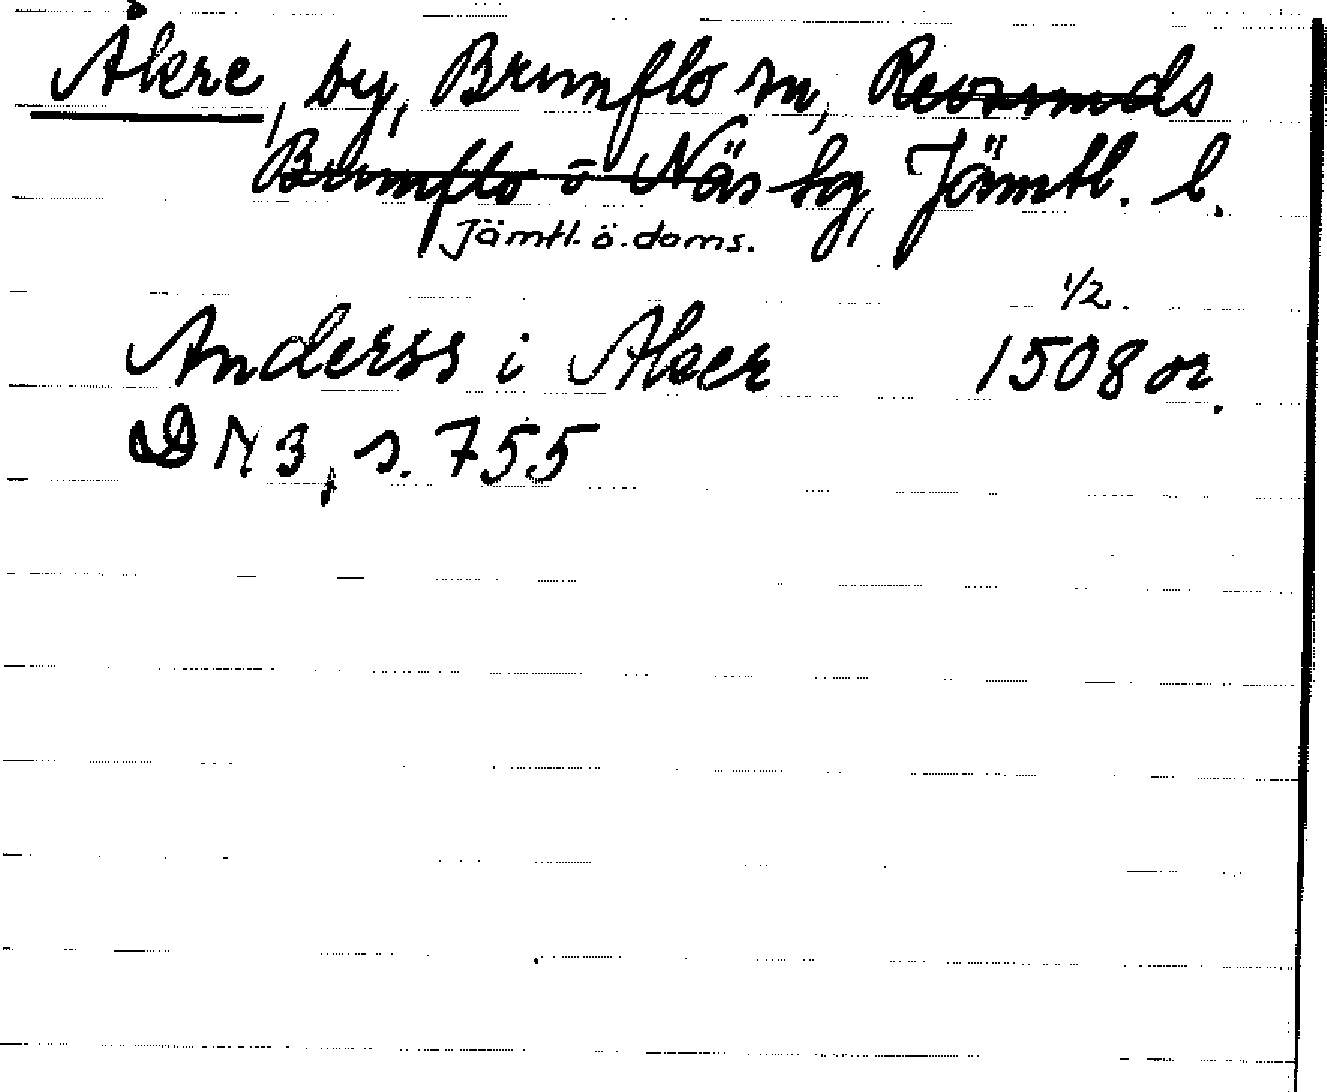 Åkre, by, Brunflo sn, Revsunds
Brunflo o Näs tg, Jämtl. l.
Jämtl. ö. doms.
1/2.
Anderss i Aker 1508 or.
DN 3, s. 755